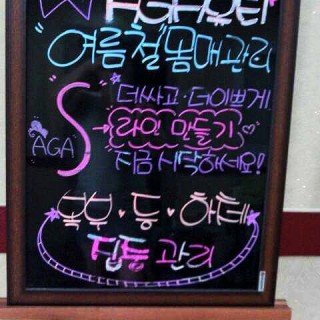 AGA뷰티
"여름철"몸매관리
"더싸고·더이쁘게"
S
라인 만들기
AGA
지금 시작하세요!
복부·등·하체
집중 관리